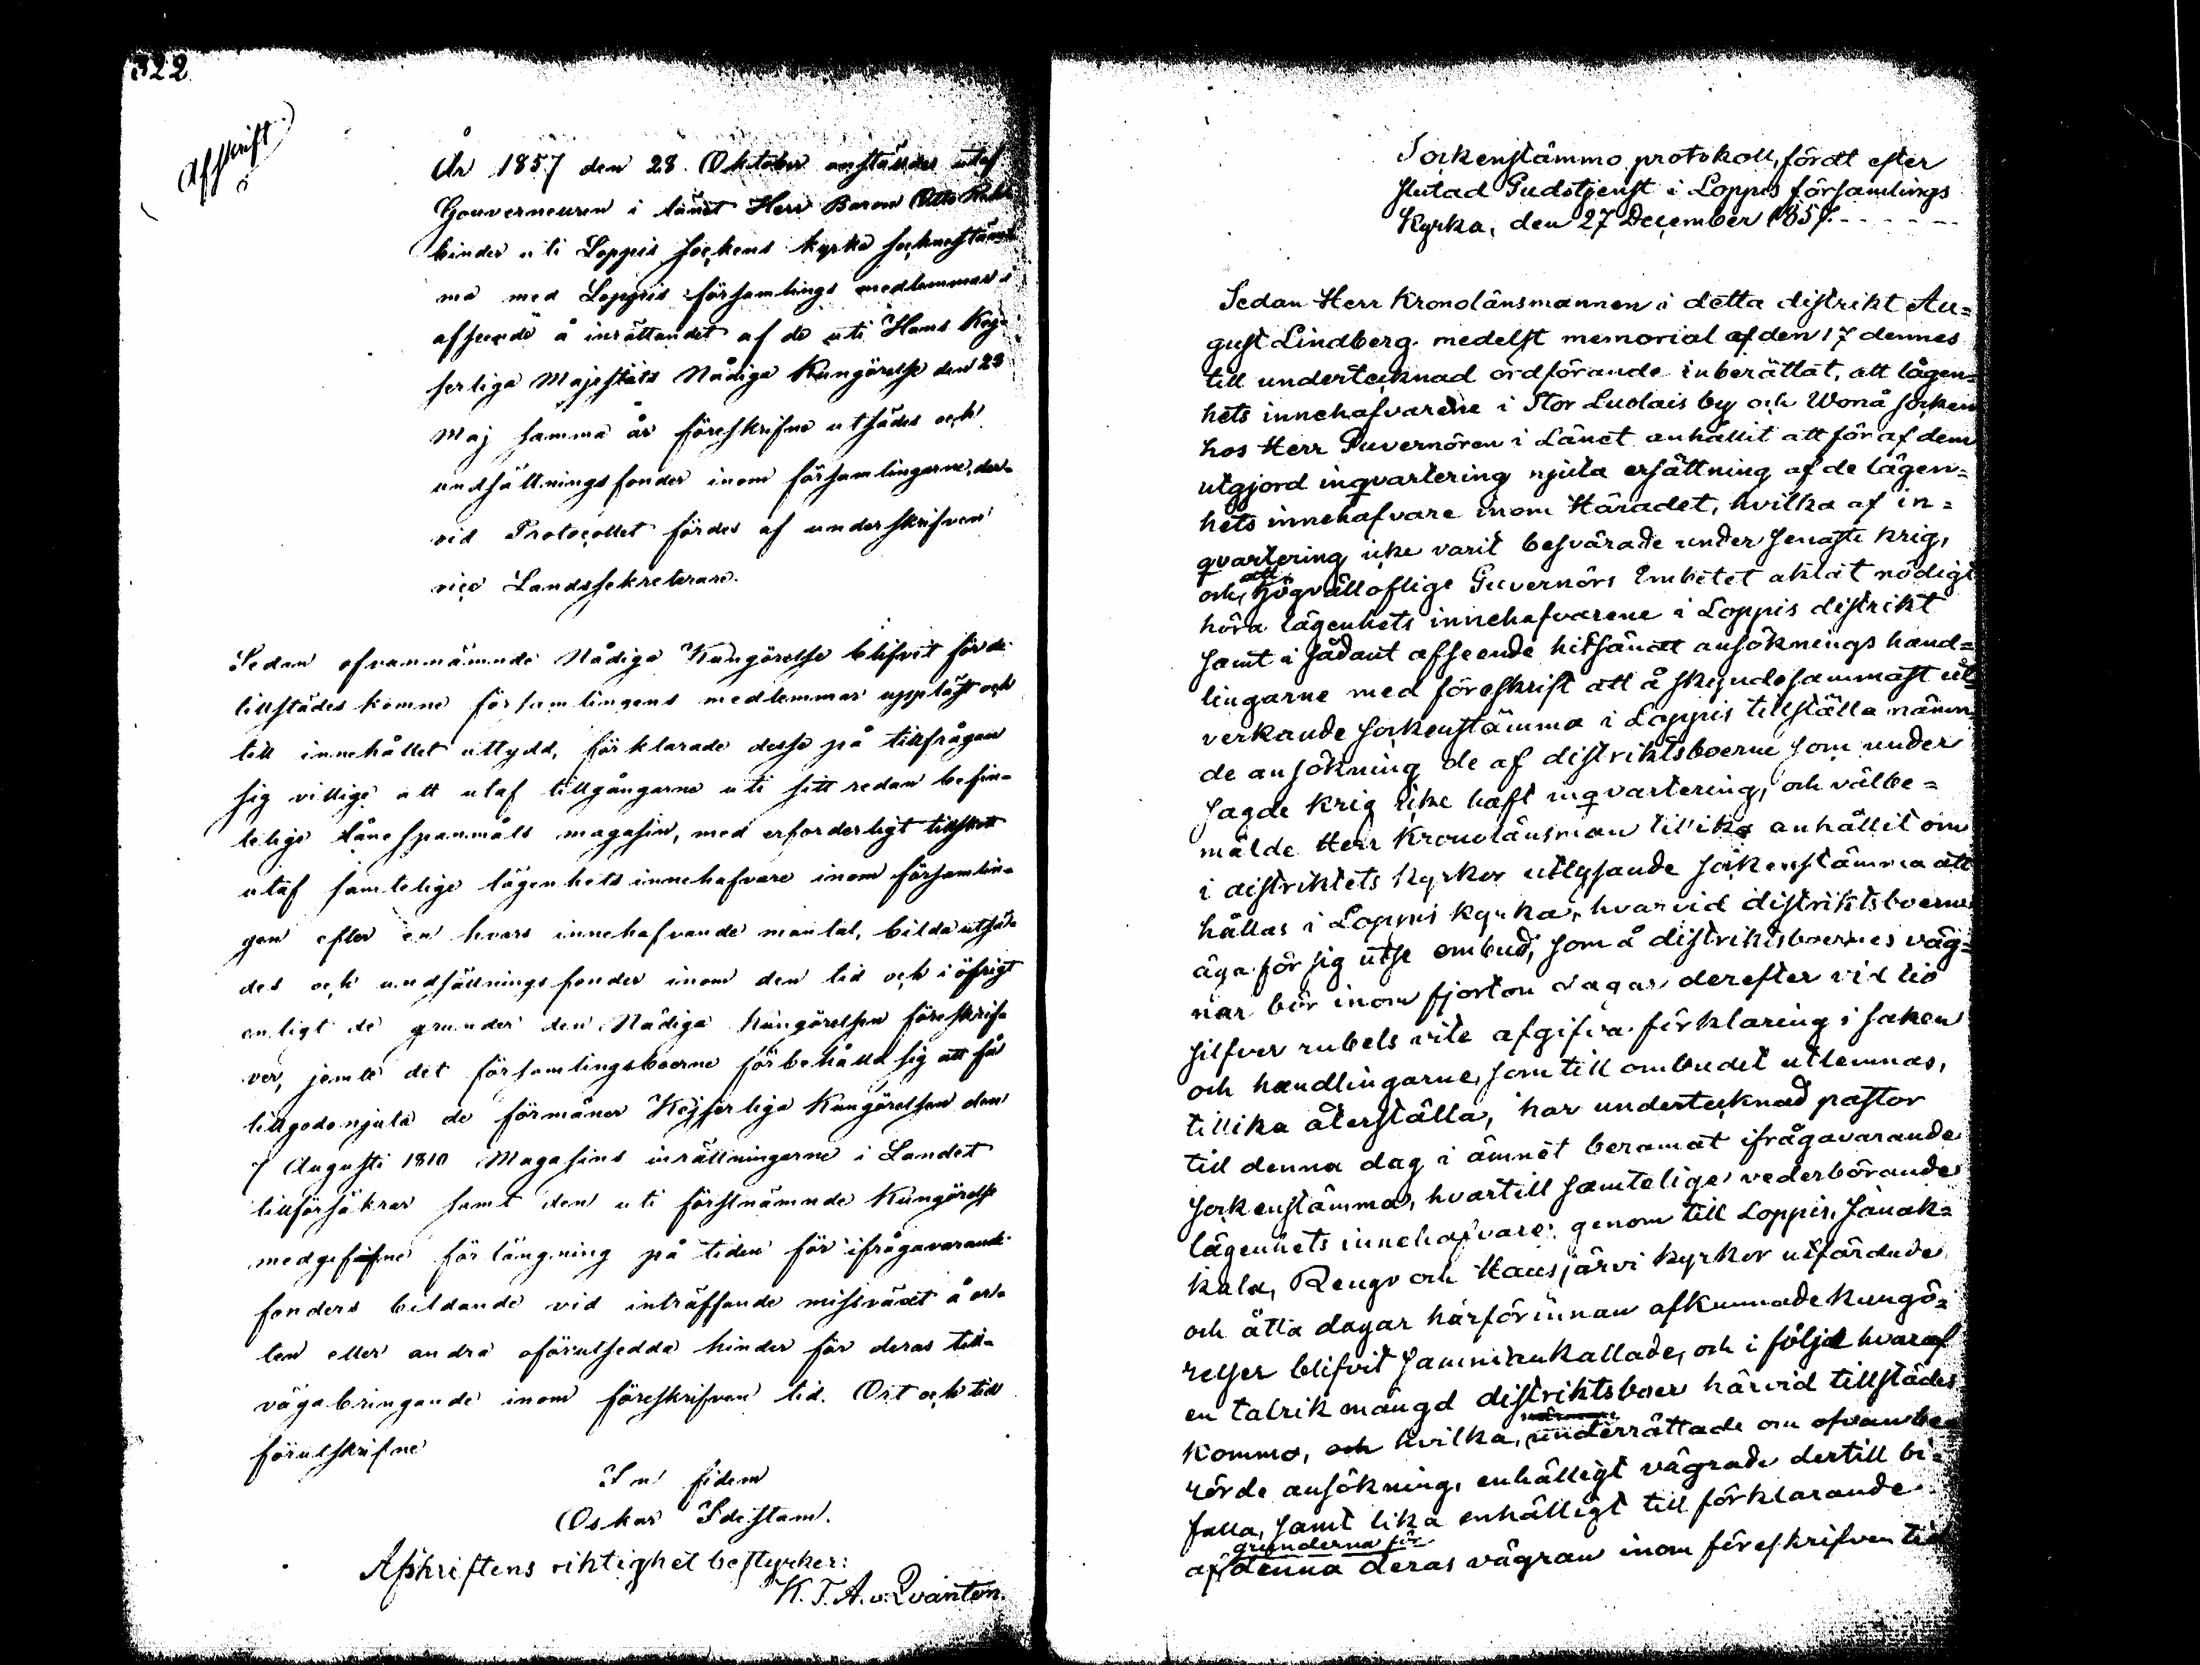 322
Afskrift
År 1857 den 28 Oktober anställdes utaf
Gouverneuren i länet Herr Baron Otto Reh-
binder uti Loppis sockens kyrka sockenstäm-
ma med Loppis församlings medlemmar i
afseende å inrättandet af de uti Hans Kej-
serliga Majestäts Nådiga Kungörelse den 28
Maj samma år föreskrifne utsädes och
undsättningsfonder inom församlingarne, der-
vid Protocollet fördes af underskrifven
vice Landssekreterare.
Sedan ofvannämnde Nådiga Kungörelse blifvit för de
tillstädeskomne församlingens medlemmar uppläst och
till innehållet uttydd, förklarade desse på tillfrågan
sig villige att utaf tillgångarne uti sitt redan befin-
telige lånespannmåls magasin, med erforderligt tillskott
utaf samtelige lägenhets innehafvare inom församlin-
gen efter en hvars innehafvande mantal, bilda utsä-
des och undsättningsfonder inom den tid och i öfrigt
enligt de grunder den Nådiga Kungörelsen föreskrif-
ver, jemte det församlingsboerne förbehålla sig att få
tillgodonjuta de förmåner Kejserliga Kungörelsen den
7 Augusti 1810 Magasins inrättningarne i Landet
tillförsäkrar samt den uti förstnämnde Kungörelse
medgifne förlängning på tiden för ifrågavarande
fonders bildande vid inträffande missväxt å or-
ten eller andra oförutsedda hinder för deras till-
vägabringande inom föreskrifven tid. Ort och tid
förutskrifne
In fidem
Oskar Idestam.
Afskriftens riktighet bestyrker:
K. T. A. v. Qvanten.
Sockenstämmo protokoll, fördt efter
slutad Gudstjenst i Loppis församlings
Kyrka, den 27 December 1857.
Sedan Herr Kronolänsmannen i detta distrikt Au=
gust Lindberg medelst memorial af den 17 dennes
till undertecknad ordförande inberättat, att lägen=
hets innehafvarene i Stor Luolais by och Wonå socken
hos Herr Guvernören i Länet anhållit att för af dem
utgjord inqvartering njuta ersättning af de lägen=
hets innehafvare inom Häradet, hvilka af in=
qvartering icke varit besvärade under senaste krig,
och, att Högvälloflige Guvernörs Embetet aktat nödigt
höra lägenhets innehafvarene i Loppis distrikt
samt i sådant afseende hitsändt ansöknings hand=
lingarne med föreskrift att å skyndesammast ut=
verkande sockenstämma i Loppis tillställa nämn=
de ansökning de af distriktsboerne som under
sagde krig icke haft inqvartering, och välbe=
mälde Herr Kronolänsman tillika anhållit om
i distriktets kyrkor utlysande sockenstämma att
hållas i Loppis kyrka, hvarvid distriktsboerne
äga för sig utse ombud, som å distriktsboernes väg=
nar bör inom fjorton dagar derefter vid tio
silfver rubels vite afgifva förklaring i saken
och handlingarne, som till ombudet utlemnas,
tillika återställa, har undertecknad pastor
till denna dag i ämnet beramat ifrågavarande
sockenstämma, hvartill samtelige vederbörande
lägenhets innehafvare genom till Loppis, Janak=
kala, Rengo och Hausjärvi kyrkor utfärdade
och åtta dagar härförinnan afkunnade kungö=
relser blifvit sammankallade, och i följd hvaraf
en talrik mängd distriktsboer härvid tillstädes
kommo, och hvilka, underrättade om ofvanbe=
rörde ansökning, enhälligt vägrade dertill bi=
falla, samt lika enhälligt till förklarande
af grunderna för denna deras vägran inom föreskrifven tid